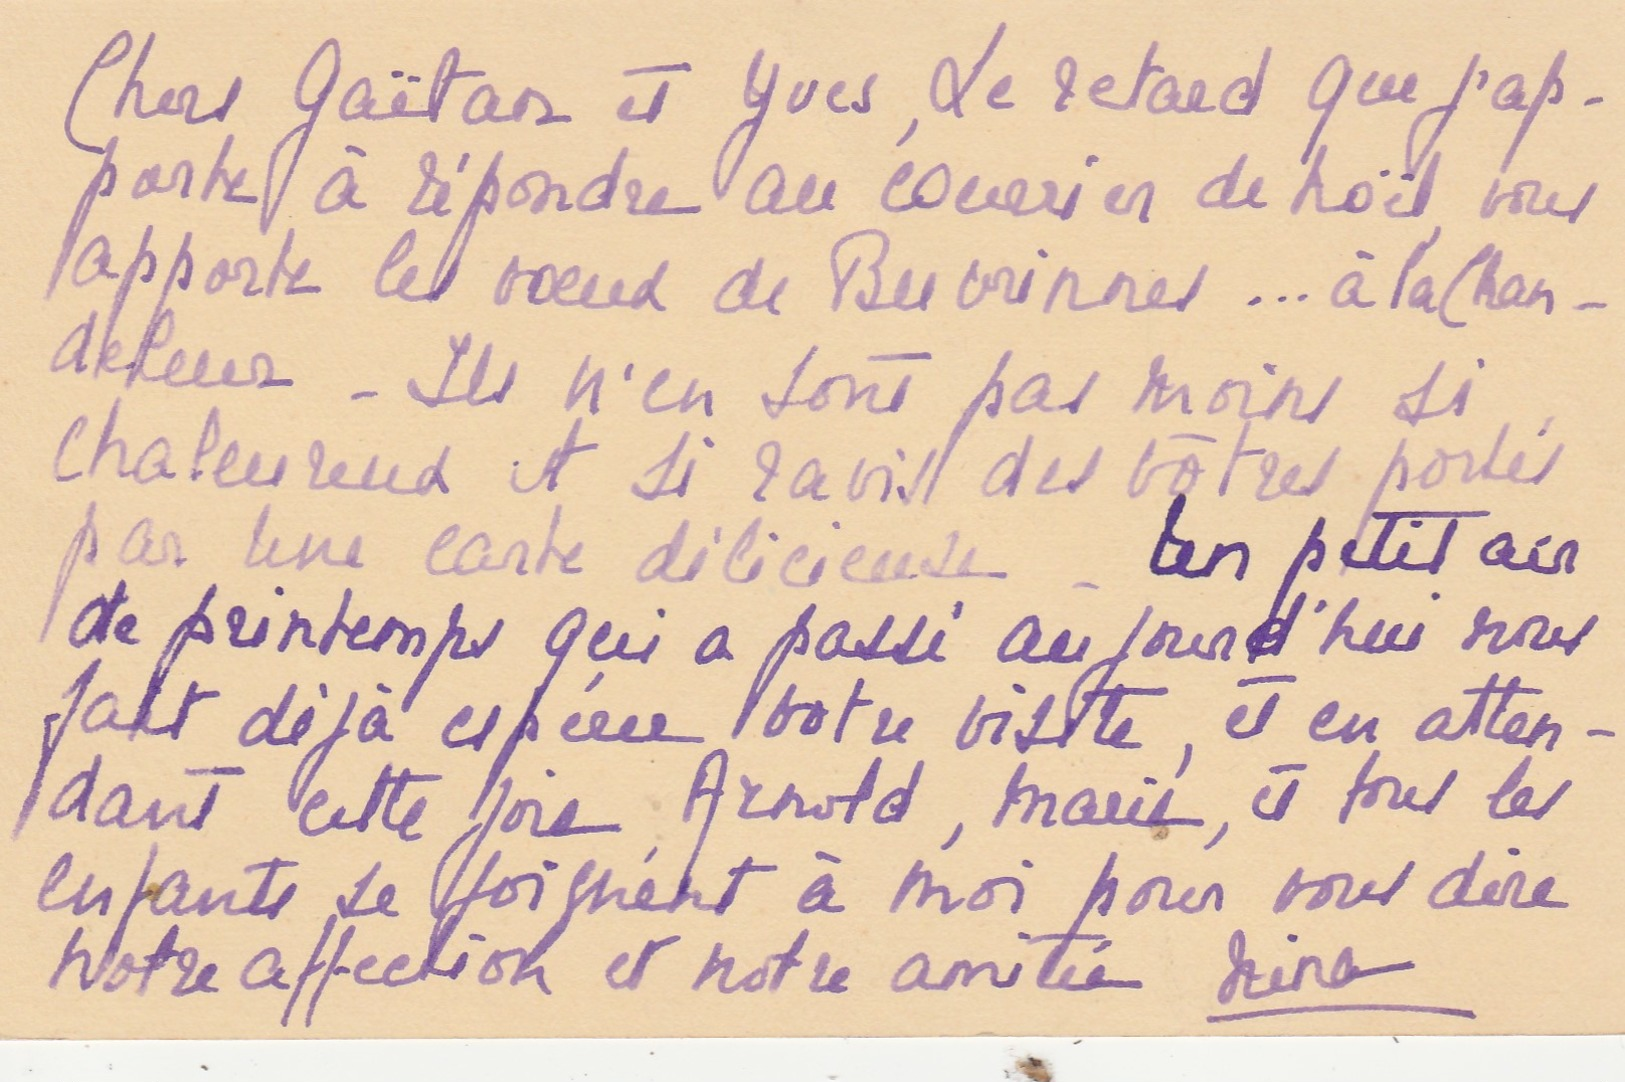 Chers Gaëtan et Yves, Le retard que j'ap-
porte à répondre au courrier de Noël, vous
apporte les voeux de Buvrinnes ... à la Chan-
deleur - Ils n'en sont pas moins si
chaleureux et si ravis des vôtres portés
par une carte délicieuse - Un petit air
de printemps qui a passé aujourd'hui nous
fait déjà espérer votre visite, et en atten-
dant cette joie, Arnold, Marie, et tous les
enfants se joignent à moi pour vous dire
notre affection et notre amitié